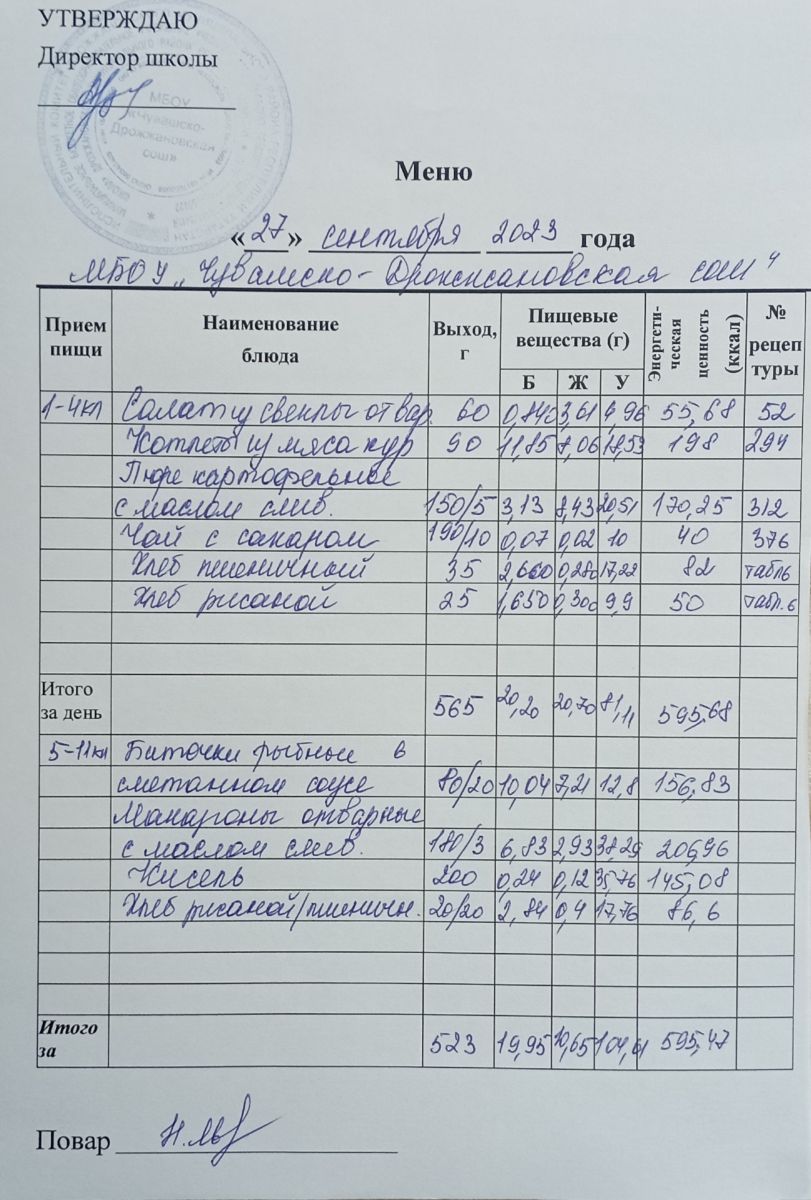 УТВЕРЖДАЮ
Директор школы
МБОУ
«Чувашско-
Дрожжановская
сош»
Меню
«27» сентября 2023 года
МБОУ „Чувашско-Дрожжановская сош"
Прием пищи Наименование блюда Выход, г Пищевые вещества (г) Б Ж У Энергети-ческая ценность (ккал) № рецеп туры
1-4кл Салат из свеклы отвар. 60 0,840 3,61 4,96 55,68 52
Котлета из мяса кур 90 11,85 8,06 18,53 198 294
Пюре картофельное
с маслом слив. 150/5 3,13 8,43 20,51 170,25 312
Чай с сахаром 190/10 0,07 0,02 10 40 376
Хлеб пшеничный 35 2,660 0,280 17,22 82 табл6
Хлеб ржаной 25 1,650 0,300 9,9 50 табл.6
Итого за день 565 20,20 20,70 81,11 595,68
5-11кл Биточки рыбные в
сметанном соусе 80/20 10,04 7,21 12,8 156,83
Макароны отварные
с маслом слив. 180/3 6,83 2,93 38,29 206,96
Кисель 200 0,24 0,12 35,76 145,08
Хлеб ржаной/пшеничн. 20/20 2,84 0,4 17,76 86,6
Итого за 523 19,95 10,65 104,61 595,47
Повар